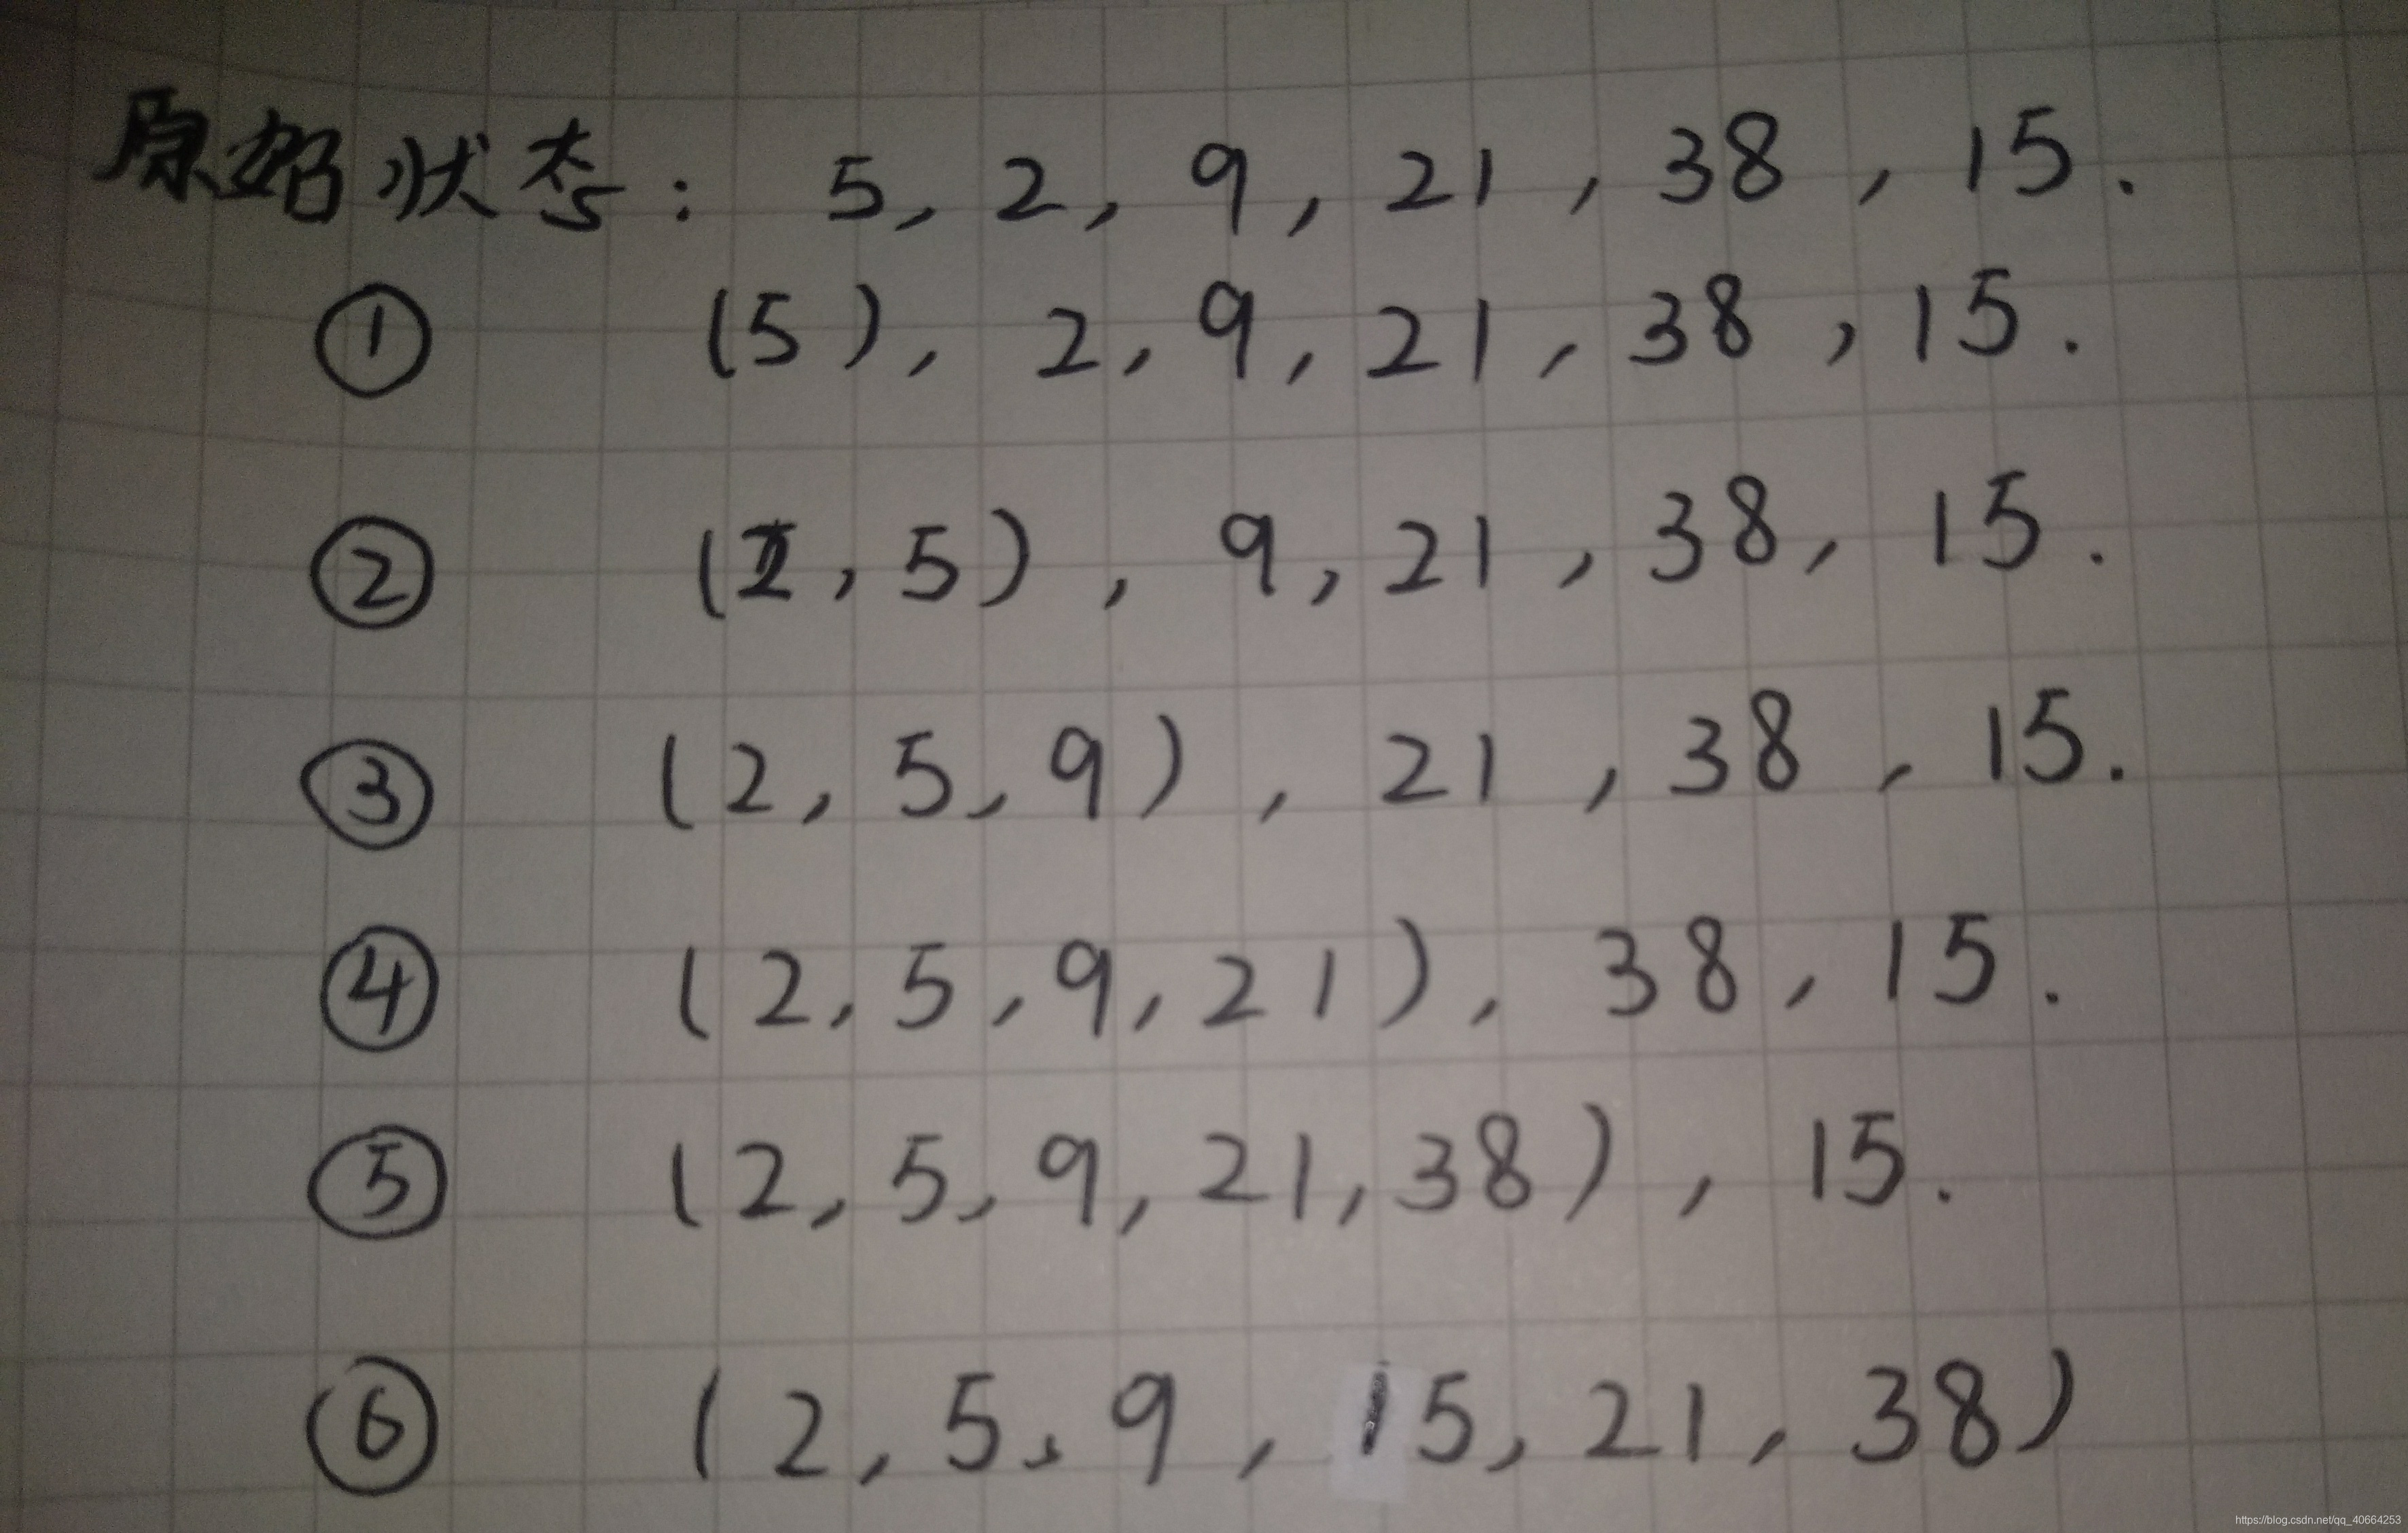 原始状态: 5, 2, 9, 21, 38, 15.
① (5), 2, 9, 21, 38, 15.
② (2, 5), 9, 21, 38, 15.
③ (2, 5, 9), 21, 38, 15.
④ (2, 5, 9, 21), 38, 15.
⑤ (2, 5, 9, 21, 38), 15.
⑥ (2, 5, 9, 15, 21, 38)
https://blog.csdn.net/qq_40664253